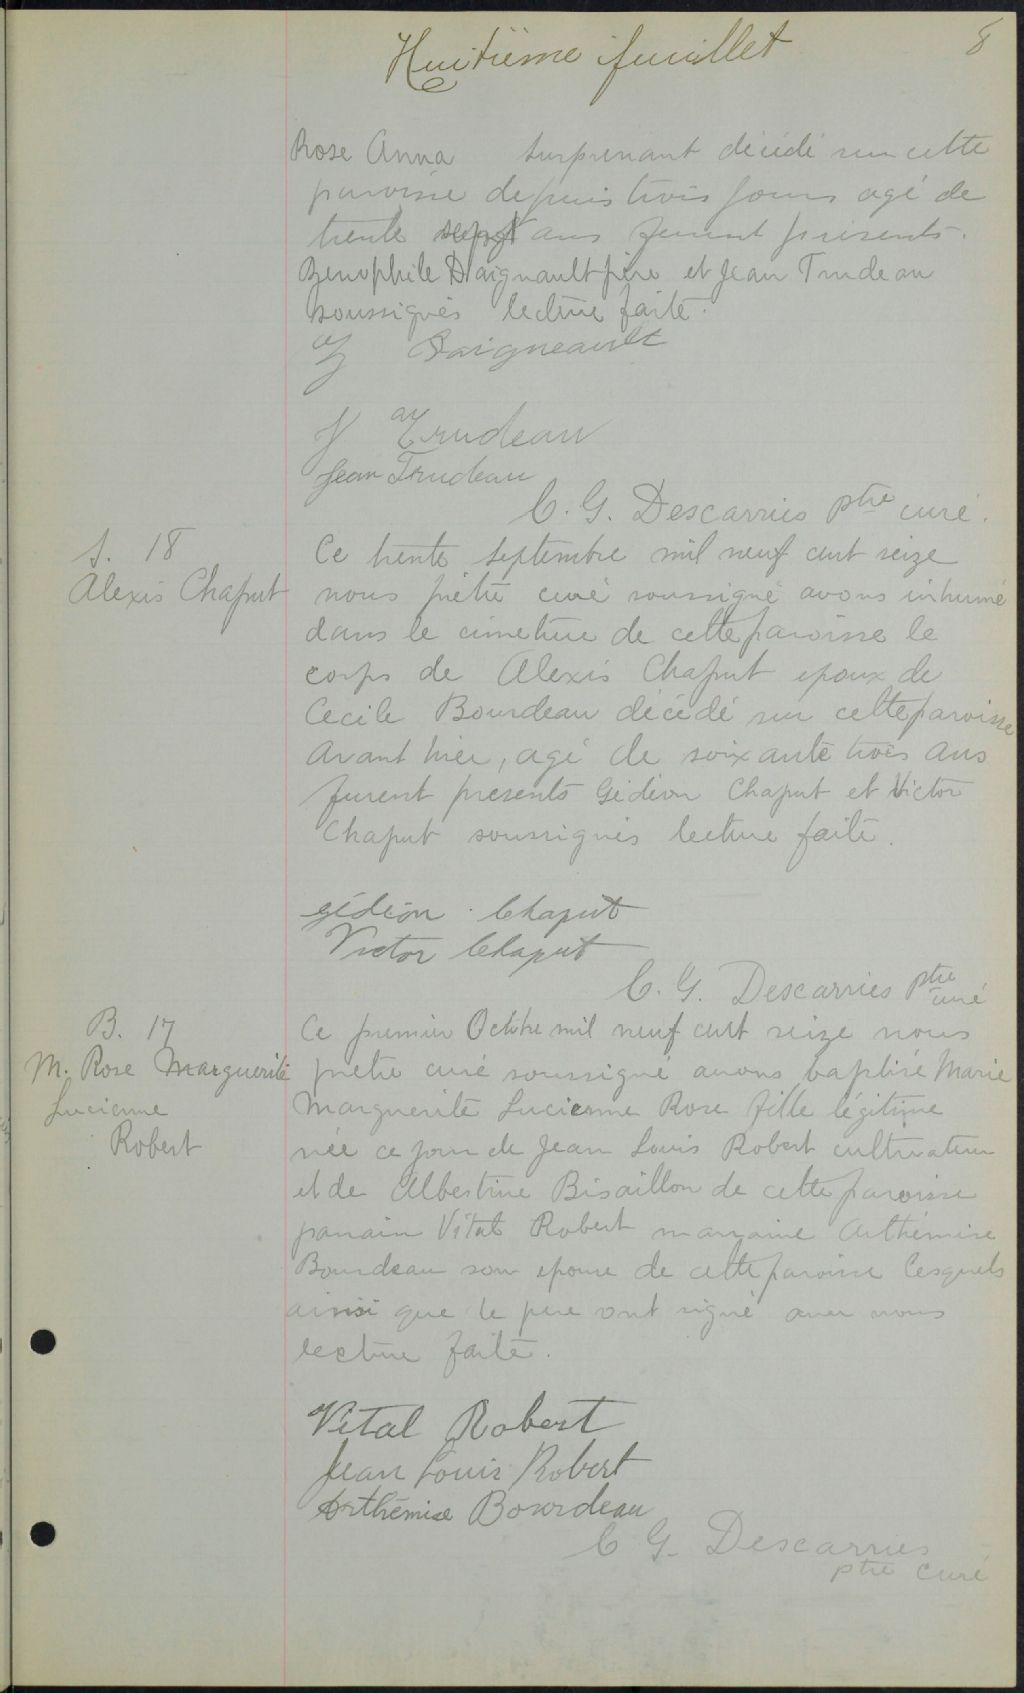 Huitième feuillet
8
Rose Anna Surprenant décédé sur cette
paroisse depuis trois jours agé de
trente sept ans furent présents.
Zenophile Daignault père et Jean Trudeau
soussignés lecture faite.
Z Daigneault
J Trudeau
Jean Trudeau
C. G. Descarries ptre curé.
S. 18
Alexis Chaput
Ce trente Septembre mil neuf cent seize
nous prêtre curé soussigné avons inhumé
dans le cimetière de cette paroisse le
corps de Alexis Chaput epoux de
Cecile Bourdeau décédé sur cette paroisse
avant hier, agé de soixante trois ans
furent presents Gédéon Chaput et Victor
Chaput soussignés lecture faite.
gédéon Chaput
Victor Chaput
C. G. Descarries ptre curé
B. 17
M. Rose Marguerite
Lucienne
Robert
Ce premier Octobre mil neuf cent seize nous
prêtre curé soussigné avons baptisé Marie
Marguerite Lucienne Rose fille légitime
née ce jour de Jean Louis Robert cultivateur
et de Albertine Bisaillon de cette paroisse
parrain Vital Robert marraine Arthémise
Bourdeau son epouse de cette paroisse lesquels
ainsi que le pere ont signé avec nous
lecture faite.
Vital Robert
Jean Louis Robert
Arthémise Bourdeau
C G. Descarries
ptre curé